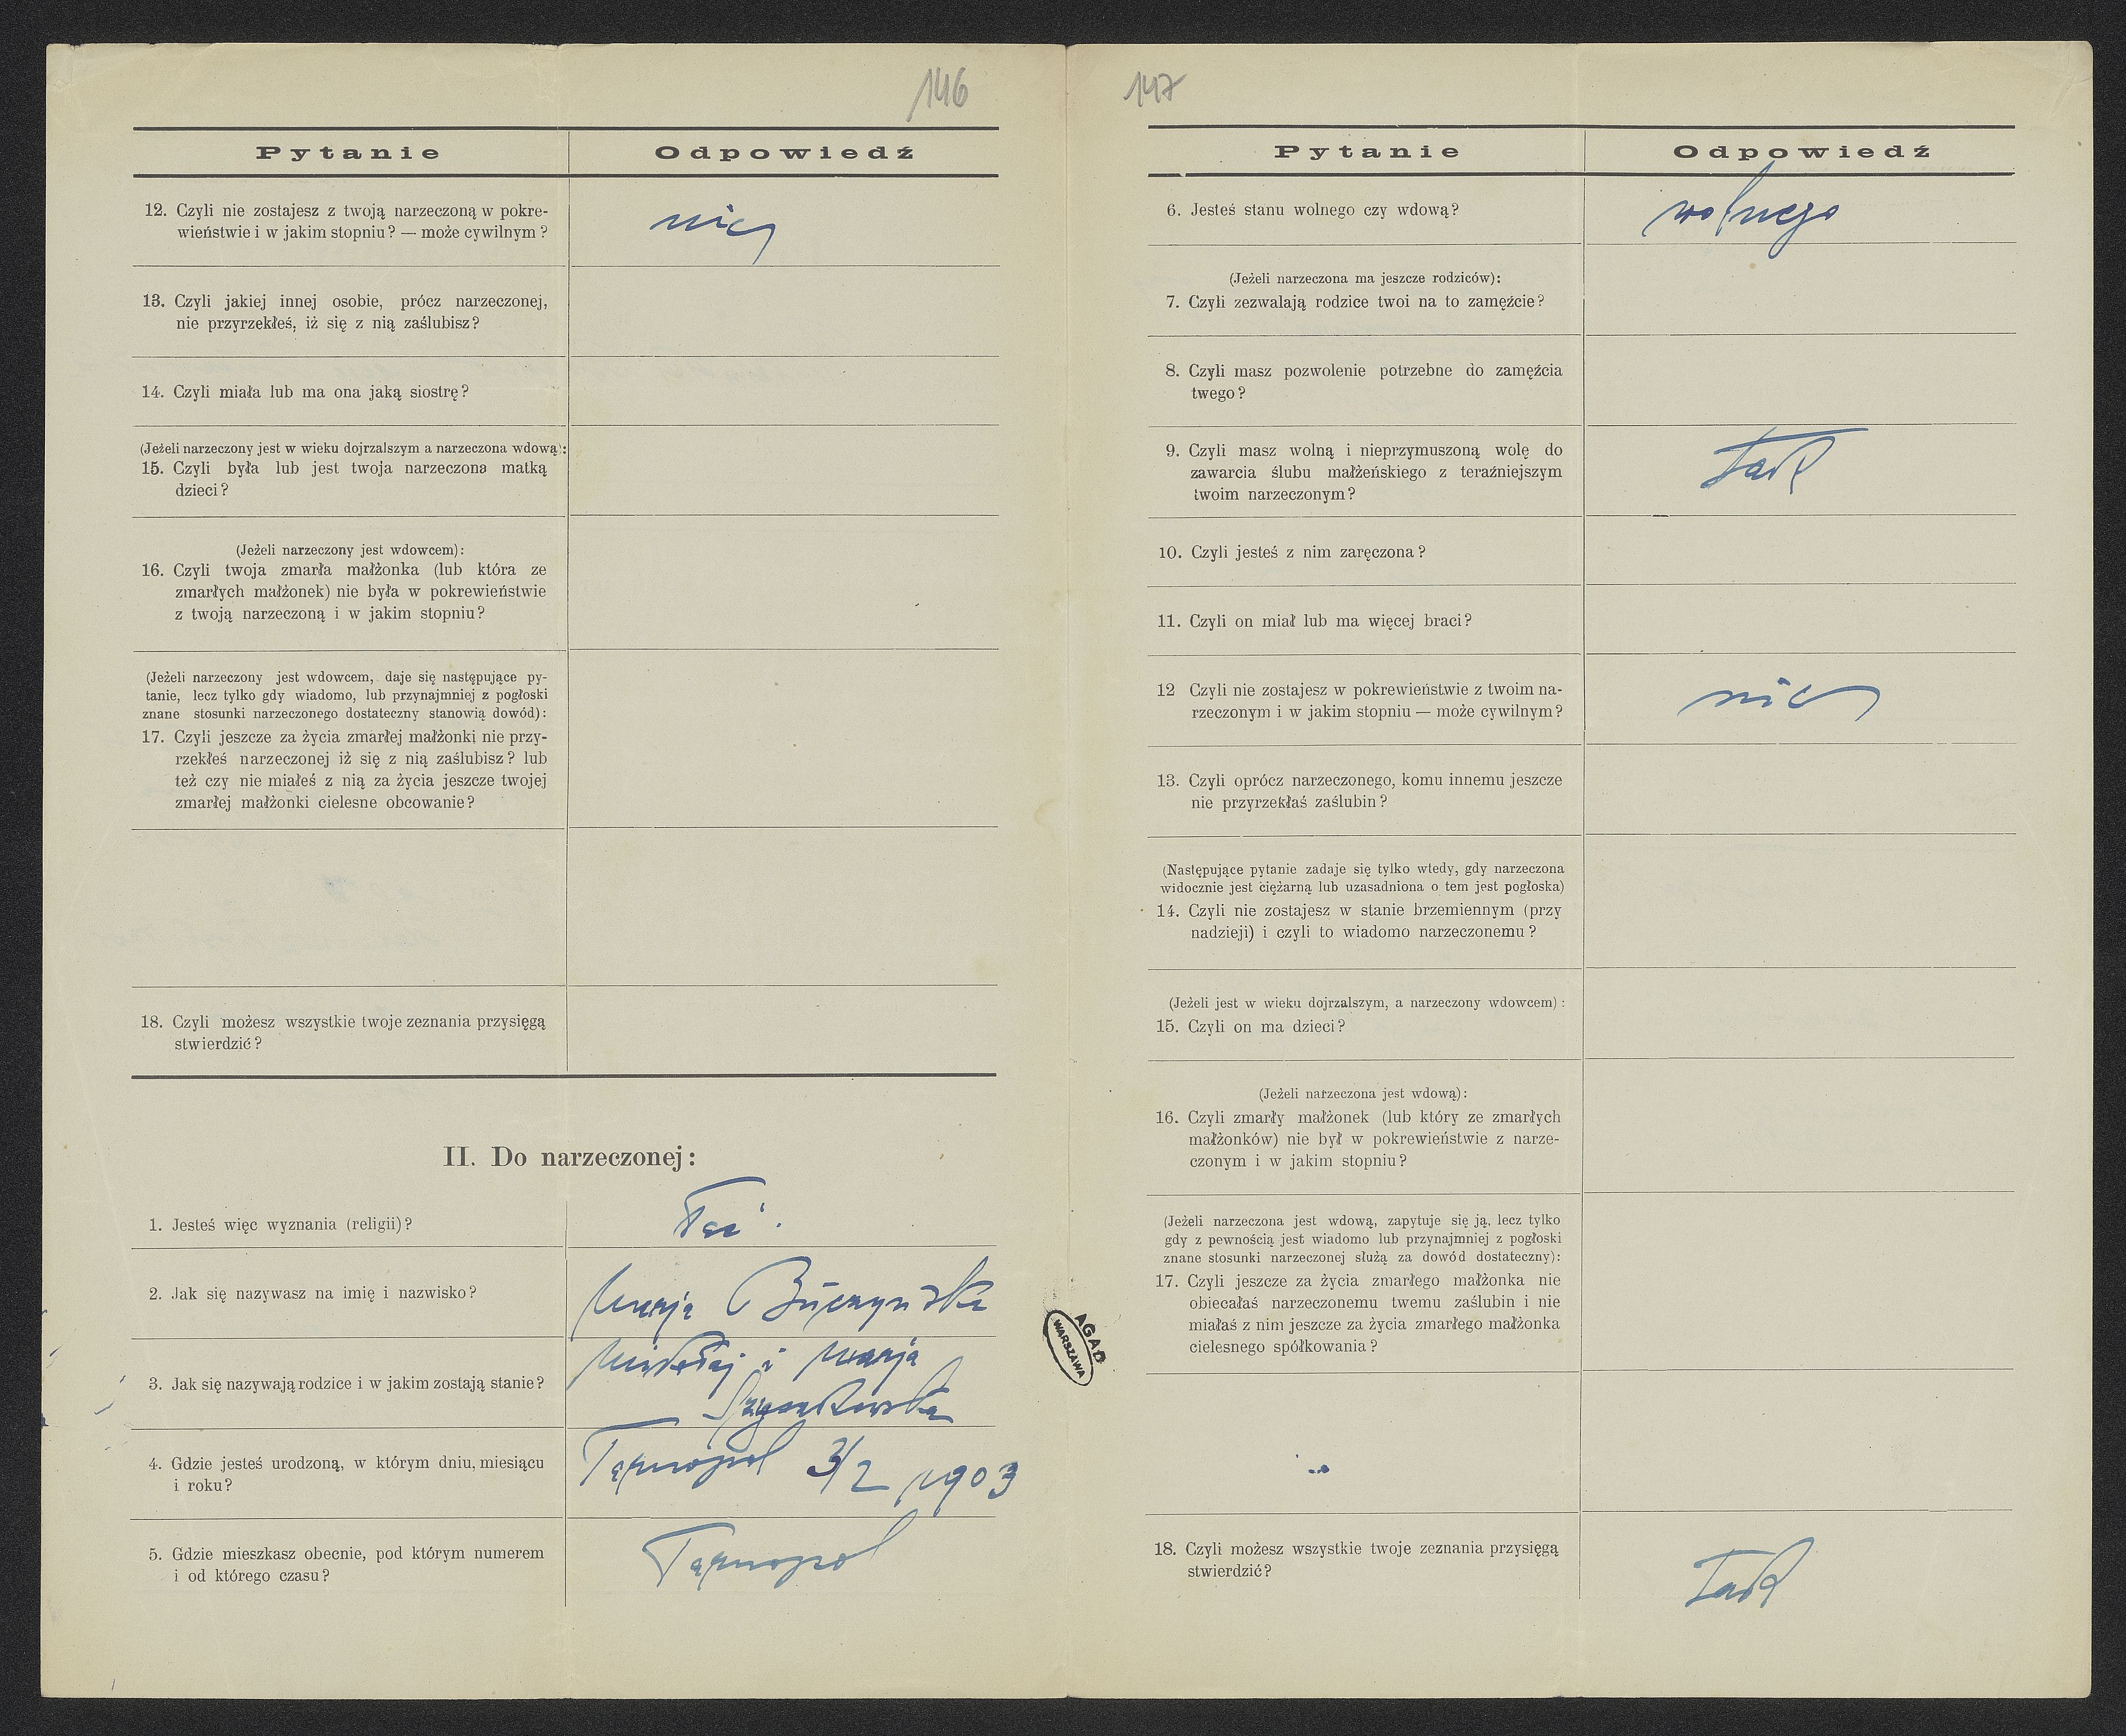 146
Pytanie
Odpowiedź
12. Czyli nie zostajesz z twoją narzeczoną w pokre-
wieństwie i w jakim stopniu? — może cywilnym?
nic
13. Czyli jakiej innej osobie, prócz narzeczonej,
nie przyrzekłeś, iż się z nią zaślubisz?
14. Czyli miała lub ma ona jaką siostrę?
(Jeżeli narzeczony jest w wieku dojrzalszym a narzeczona wdową):
15. Czyli była lub jest twoja narzeczona matką
dzieci?
(Jeżeli narzeczony jest wdowcem):
16. Czyli twoja zmarła małżonka (lub która ze
zmarłych małżonek) nie była w pokrewieństwie
z twoją narzeczoną i w jakim stopniu?
(Jeżeli narzeczony jest wdowcem, daje się następujące py-
tanie, lecz tylko gdy wiadomo, lub przynajmniej z pogłoski
znane stosunki narzeczonego dostateczny stanowią dowód):
17. Czyli jeszcze za życia zmarłej małżonki nie przy-
rzekłeś narzeczonej iż się z nią zaślubisz? lub
też czy nie miałeś z nią za życia jeszcze twojej
zmarłej małżonki cielesne obcowanie?
18. Czyli możesz wszystkie twoje zeznania przysięgą
stwierdzić?
II. Do narzeczonej:
1. Jesteś więc wyznania (religii)?
łac.
2. Jak się nazywasz na imię i nazwisko?
Marja Buczyńska
3. Jak się nazywają rodzice i w jakim zostają stanie?
Mikołaj i Marja
4. Gdzie jesteś urodzoną, w którym dniu, miesiącu
i roku?
Tarnopol 3/2 1903
5. Gdzie mieszkasz obecnie, pod którym numerem
i od którego czasu?
Tarnopol
147
Pytanie
Odpowiedź
6. Jesteś stanu wolnego czy wdową?
wolnego
(Jeżeli narzeczona ma jeszcze rodziców):
7. Czyli zezwalają rodzice twoi na to zamęźcie?
8. Czyli masz pozwolenie potrzebne do zamęźcia
twego?
9. Czyli masz wolną i nieprzymuszoną wolę do
zawarcia ślubu małżeńskiego z teraźniejszym
twoim narzeczonym?
Tak
10. Czyli jesteś z nim zaręczona?
11. Czyli on miał lub ma więcej braci?
12 Czyli nie zostajesz w pokrewieństwie z twoim na-
rzeczonym i w jakim stopniu — może cywilnym?
nic
13. Czyli oprócz narzeczonego, komu innemu jeszcze
nie przyrzekłaś zaślubin?
(Następujące pytanie zadaje się tylko wtedy, gdy narzeczona
widocznie jest ciężarną lub uzasadniona o tem jest pogłoska)
14. Czyli nie zostajesz w stanie brzemiennym (przy
nadzieji) i czyli to wiadomo narzeczonemu?
(Jeżeli jest w wieku dojrzalszym, a narzeczony wdowcem):
15. Czyli on ma dzieci?
(Jeżeli narzeczona jest wdową):
16. Czyli zmarły małżonek (lub który ze zmarłych
małżonków) nie był w pokrewieństwie z narze-
czonym i w jakim stopniu?
(Jeżeli narzeczona jest wdową, zapytuje się ją, lecz tylko
gdy z pewnością jest wiadomo lub przynajmniej z pogłoski
znane stosunki narzeczonej służą za dowód dostateczny):
17. Czyli jeszcze za życia zmarłego małżonka nie
obiecałaś narzeczonemu twemu zaślubin i nie
miałaś z nim jeszcze za życia zmarłego małżonka
cielesnego spółkowania?
18. Czyli możesz wszystkie twoje zeznania przysięgą
stwierdzić?
Tak
AGAD
WARSZAWA